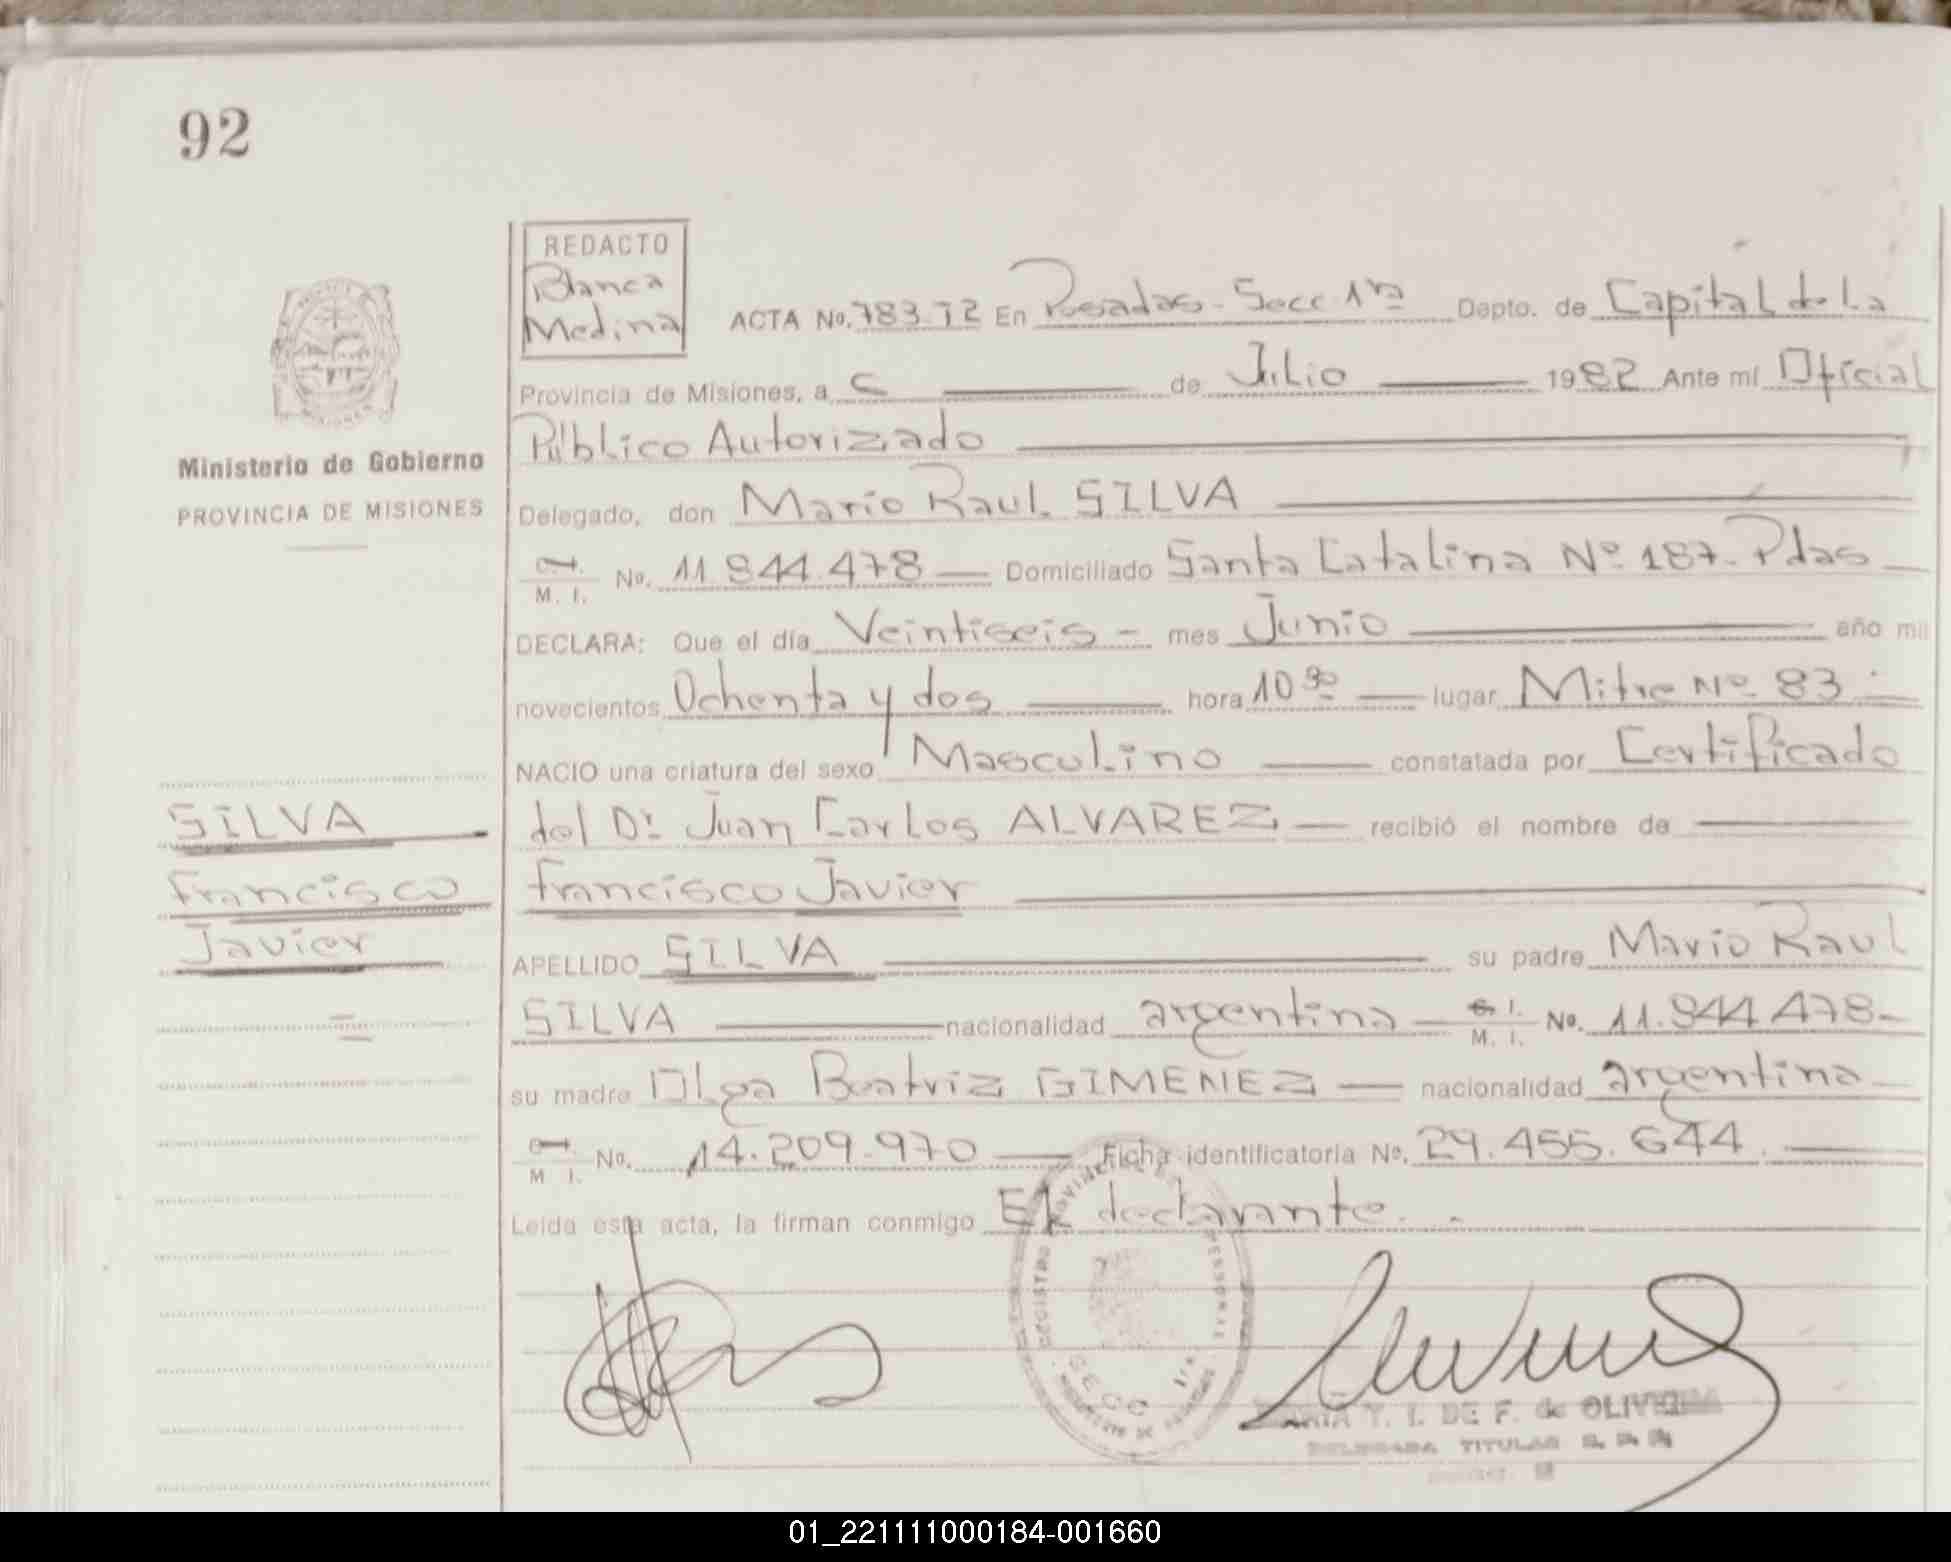 92
REDACTO
Blanca
Medina
ACTA No. 783. T2 En Posadas - Secc 1ra Depto. de Capital de La
Provincia de Misiones, a de Julio 1982 Ante mí Oficial
Público Autorizado
Ministerio de Gobierno
PROVINCIA DE MISIONES
Delegado, don Mario Raul SILVA
M. I. No. 11.944.478 Domiciliado Santa Catalina Nº 187 - Pdas
DECLARA: Que el día Veintiseis - mes Junio año mil
novecientos Ochenta y dos hora 10 30 lugar Mitre Nº 83
NACIO una criatura del sexo Masculino constatada por Certificado
del Dr Juan Carlos ALVAREZ recibió el nombre de
Francisco Javier
APELLIDO SILVA su padre Mario Raul
SILVA nacionalidad argentina M. I. No. 11.944.478-
su madre Olga Beatriz GIMENEZ nacionalidad argentina
M I. No. 14.209.970 Ficha identificatoria No. 29.455.644.
Leída esta acta, la firman conmigo El declarante.
SILVA
Francisco
Javier
SECC 1ra.
MARIA Y. I. DE F. de OLIVEIRA
DELEGADA TITULAR
01_221111000184-001660